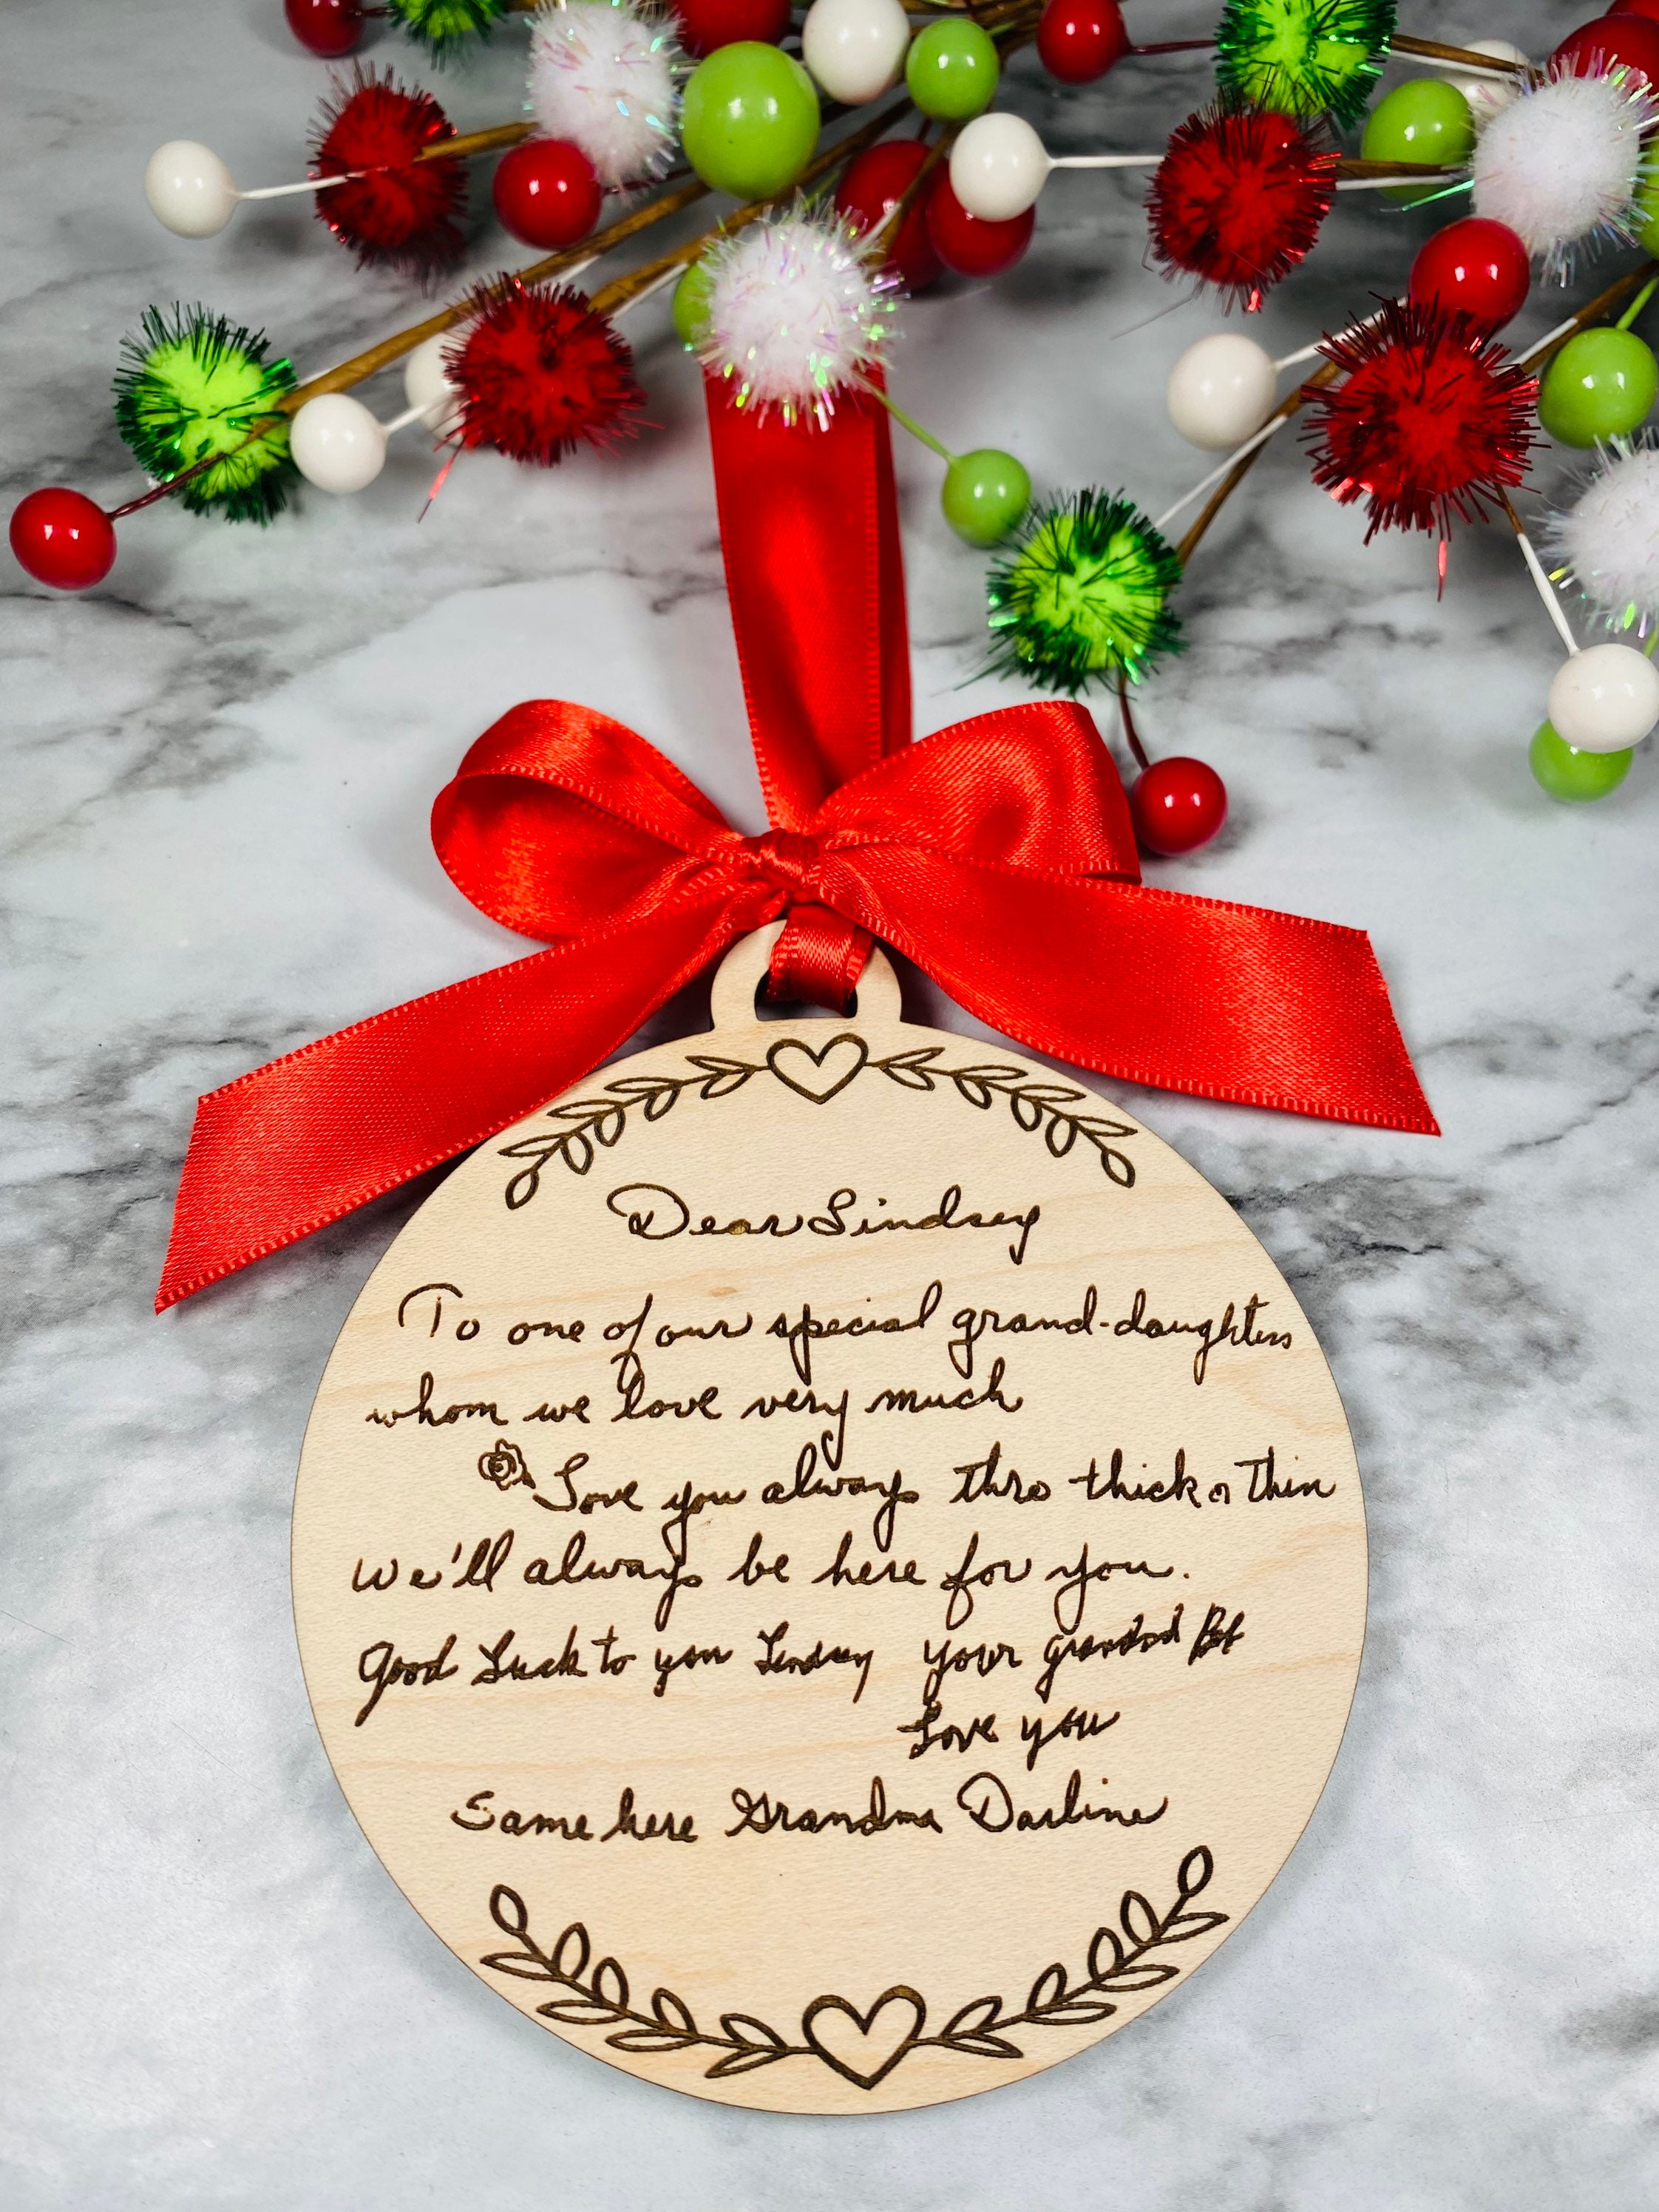 Dear Lindsey
To one of our special grand-daughters
whom we love very much
Love you always thro thick n thin
we'll always be here for you.
Good Luck to you Lindsey your grandad Bob
Love you
Same here Grandma Darline